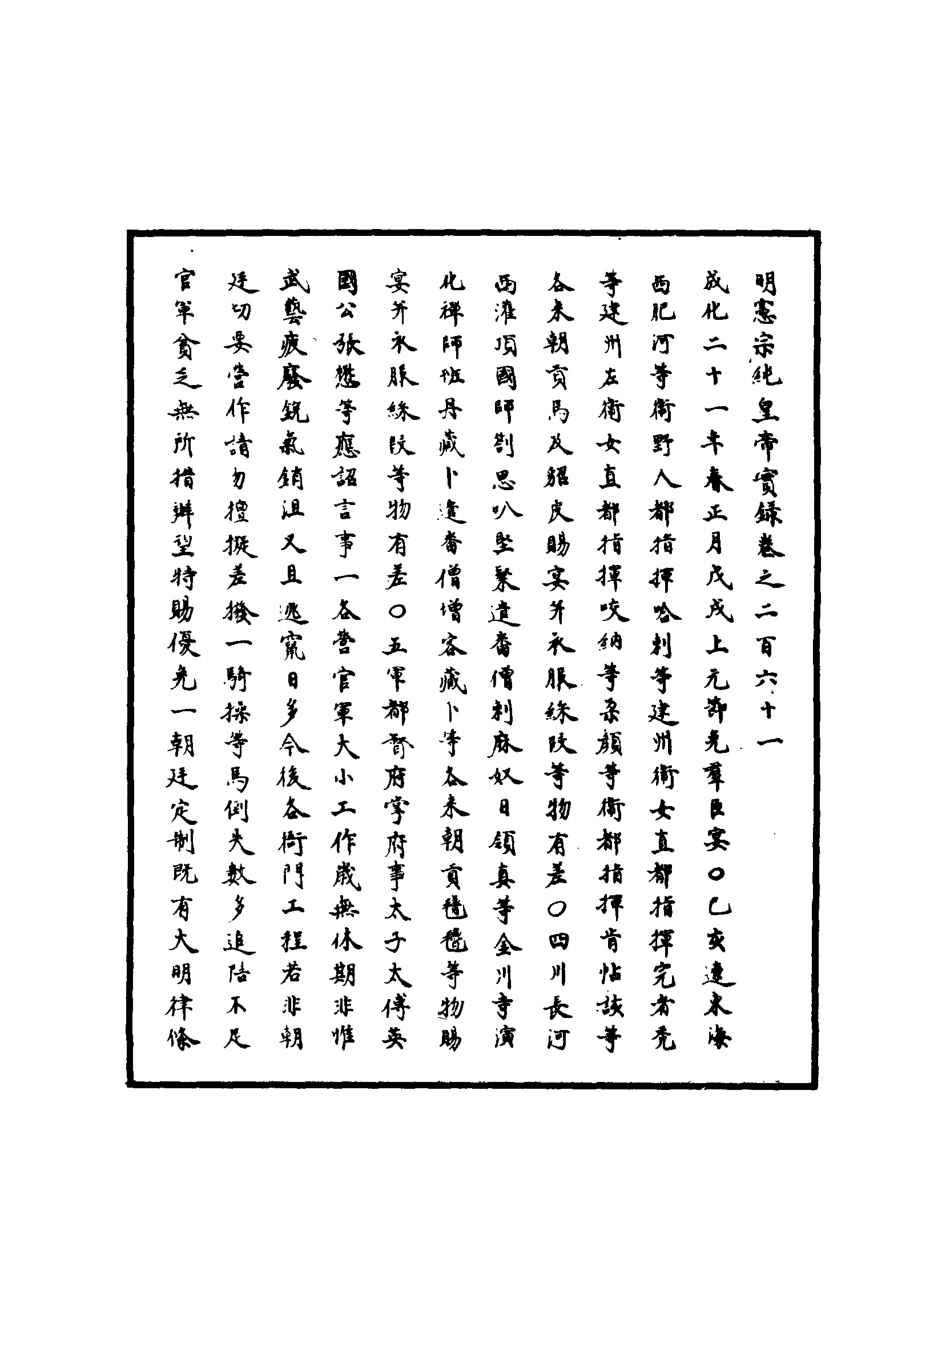 明憲宗純皇帝實録卷之二百六十一
成化二十一年春正月戊戌上元節免羣臣宴○己亥遼東海
西肥河等衛野人都指揮哈剌等建州衛女直都指揮完者禿
等建州左衛女直都指揮咬納等朶顏等衛都指揮肯帖該等
各來朝貢馬及貂皮賜宴并衣服綵段等物有差○四川長河
西灌頂國師劄思叭堅粲遣畨僧剌麻奴日領真等金川寺演
化禪師班丹藏卜遣畨僧增容藏卜等各來朝貢氆氌等物賜
宴并衣服綵叚等物有差○五軍都督府掌府事太子太傅英
國公張懋等應詔言事一各營官軍大小工作歲無休期非惟
武藝疲廢銳氣銷沮又且逃竄日多今後各衙門工程若非朝
廷切要營作請勿擅擬差撥一騎操等馬倒失數多追陪不足
官軍貧乏無所措辦望特賜優免一朝廷定制既有大明律條